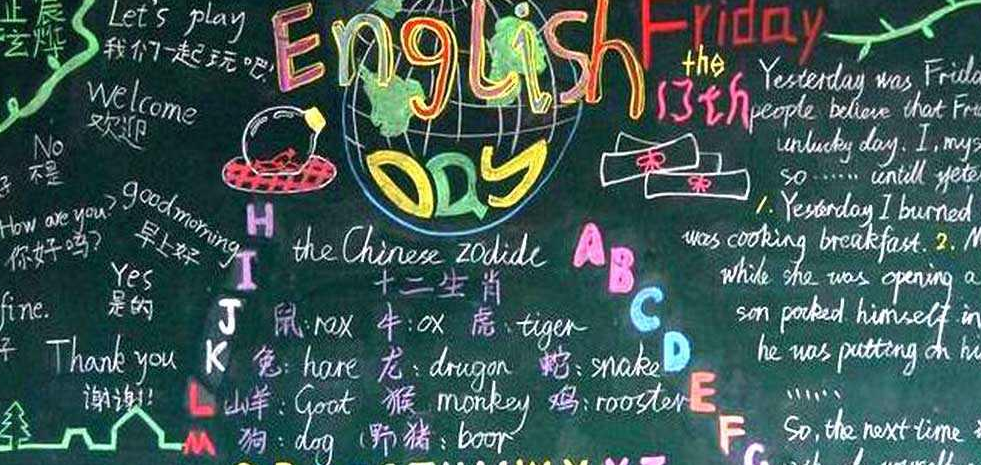 Let's play
我们一起玩吧!
Welcome
欢迎
No
不是
How are you?
你好吗?
good morning
早上好
Yes
是的
fine.
Thank you
谢谢!!
English
Day
H
I
J
K
L
M
the Chinese zodide
十二生肖
鼠:rax 牛:ox 虎:tiger
兔:hare 龙:drugon 蛇:snake
山羊:Goat 猴 monkey 鸡:rooster
狗:dog (野猪:boor
A
B
C
D
E
F
G
Friday
the
13th
Yesterday was
people believe that
unlucky day. I,
so ...... untill
1. Yesterday I burned
was cooking breakfast. 2.
while she was opening a
son pocked himself in
he was putting on
......
So, the next time